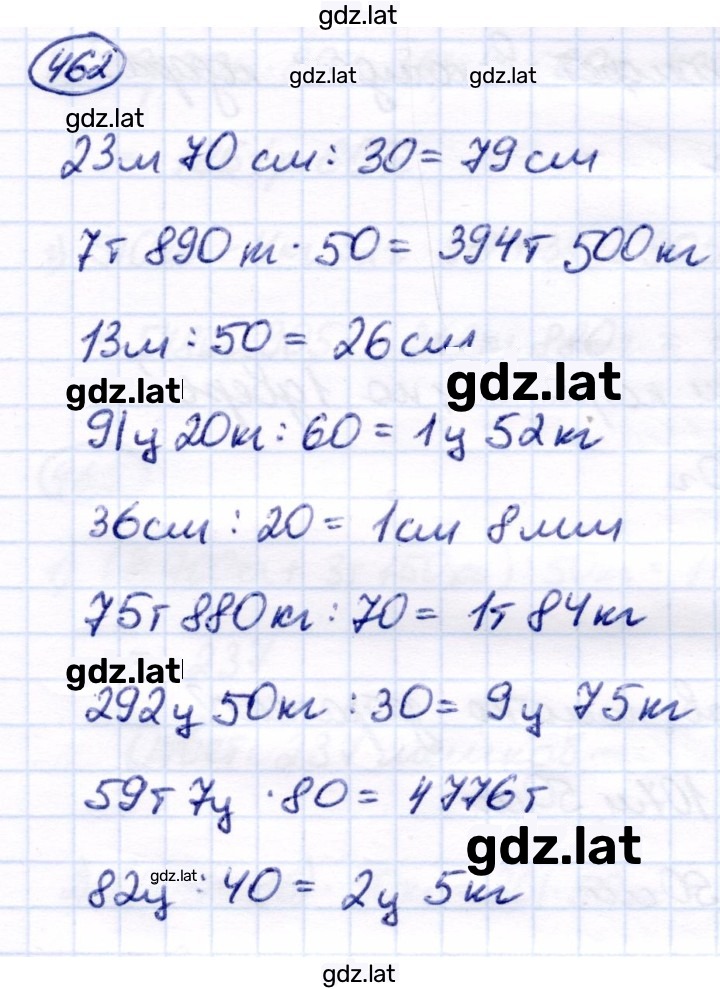 gdz.lat
462
gdz.lat gdz.lat
gdz.lat
23м 70 см : 30 = 79 см
7т 890 т · 50 = 394т 500 кг
13м : 50 = 26 см
gdz.lat gdz.lat
91ц 20кг : 60 = 1ц 52 кг
36см : 20 = 1см 8мм
75т 880кг : 70 = 1т 84кг
gdz.lat
292ц 50кг : 30 = 9ц 75кг
59т 7ц · 80 = 4776т
gdz.lat
gdz.lat
82ц : 40 = 2ц 5кг
gdz.lat